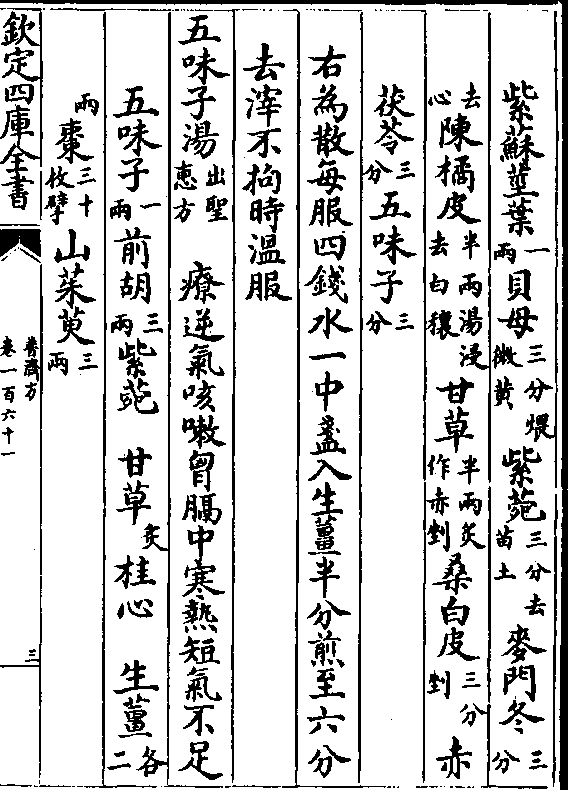 紫蘇莖葉一兩貝母三分煨微黄紫菀三分去苗土麥門冬三分
去心陳橘皮半兩湯浸去白穰甘草半兩炙作赤剉桑白皮三分剉赤
茯苓三分五味子三分
右為散每服四錢水一中盞入生薑半分煎至六分
去滓不拘時溫服
五味子湯出聖惠方 療逆氣咳嗽胷膈中寒熱短氣不足
五味子一兩前胡三兩紫菀 甘草炙桂心 生薑各二
兩棗三十枚擘山茱萸三兩
欽定四庫全書
普濟方
卷一百六十一
三